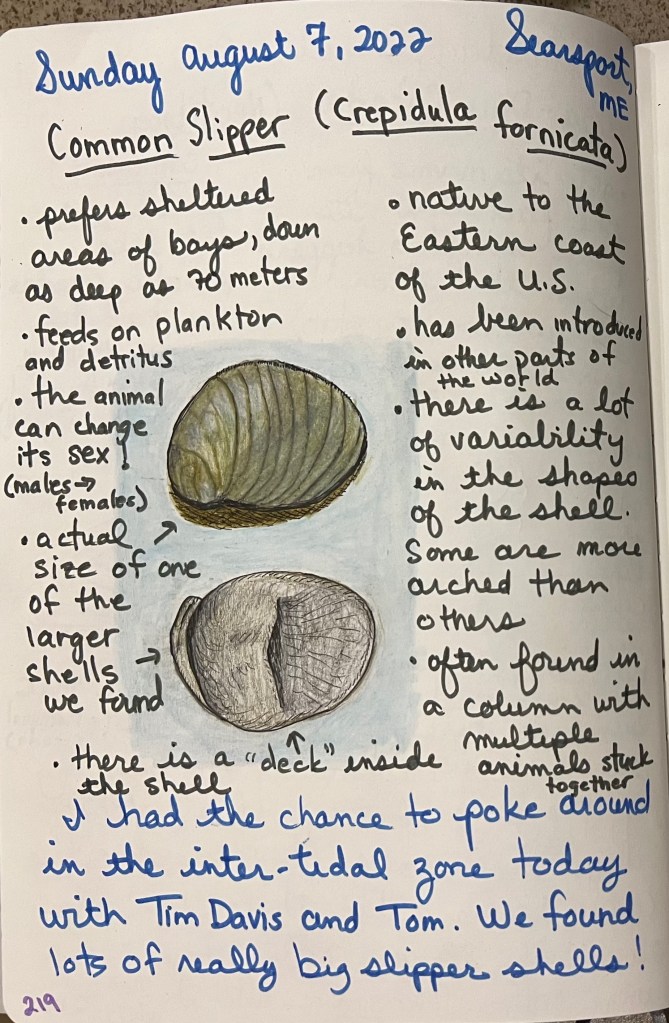 Sunday August 7, 2022
Searsport,
ME
Common Slipper (Crepidula fornicata)
• prefers sheltered
areas of bays, down
as deep as 70 meters
• feeds on plankton
and detritus
• the animal
can change
its sex!
(males→
females)
• actual
size of one
of the
larger
shells
we found
• there is a "deck" inside
the shell
• native to the
Eastern coast
of the U.S.
• has been introduced
in other parts of
the world
• there is a lot
of variability
in the shapes
of the shell.
Some are more
arched than
others
• often found in
a column with
multiple
animals stuck
together
I had the chance to poke around
in the inter-tidal zone today
with Tim Davis and Tom. We found
lots of really big slipper shells!
219